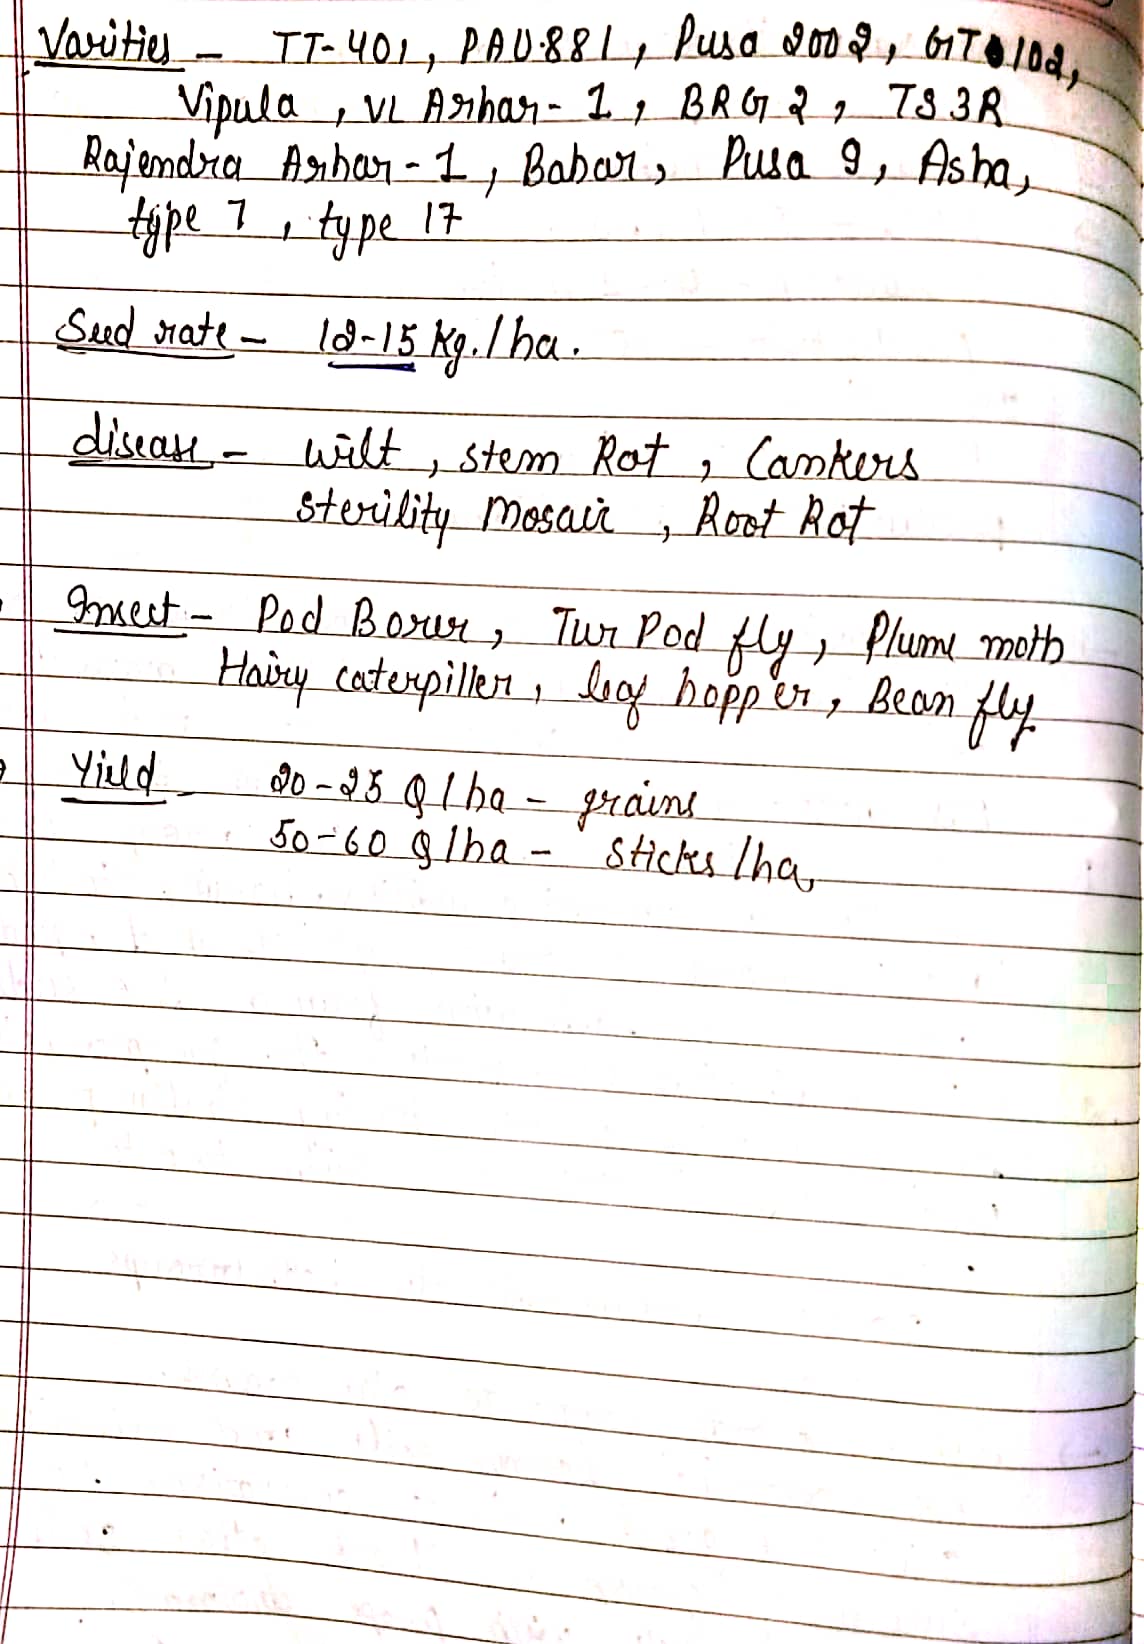 Varities - TT-401, PAU-881, Pusa 2002, GT 102,
Vipula, VL Arhar-1, BRG 2, TS 3R
Rajendra Arhar-1, Bahar, Pusa 9, Asha,
type 7, type 17
Seed rate - 12-15 Kg./ha.
disease - Wilt, stem Rot, Cankers
Sterility Mosaic, Root Rot
Insect - Pod Borer, Tur Pod fly, Plume moth
Hairy caterpiller, leaf hopper, Bean fly
Yield - 20-25 Q/ha - grains
50-60 Q/ha - Sticks/ha,